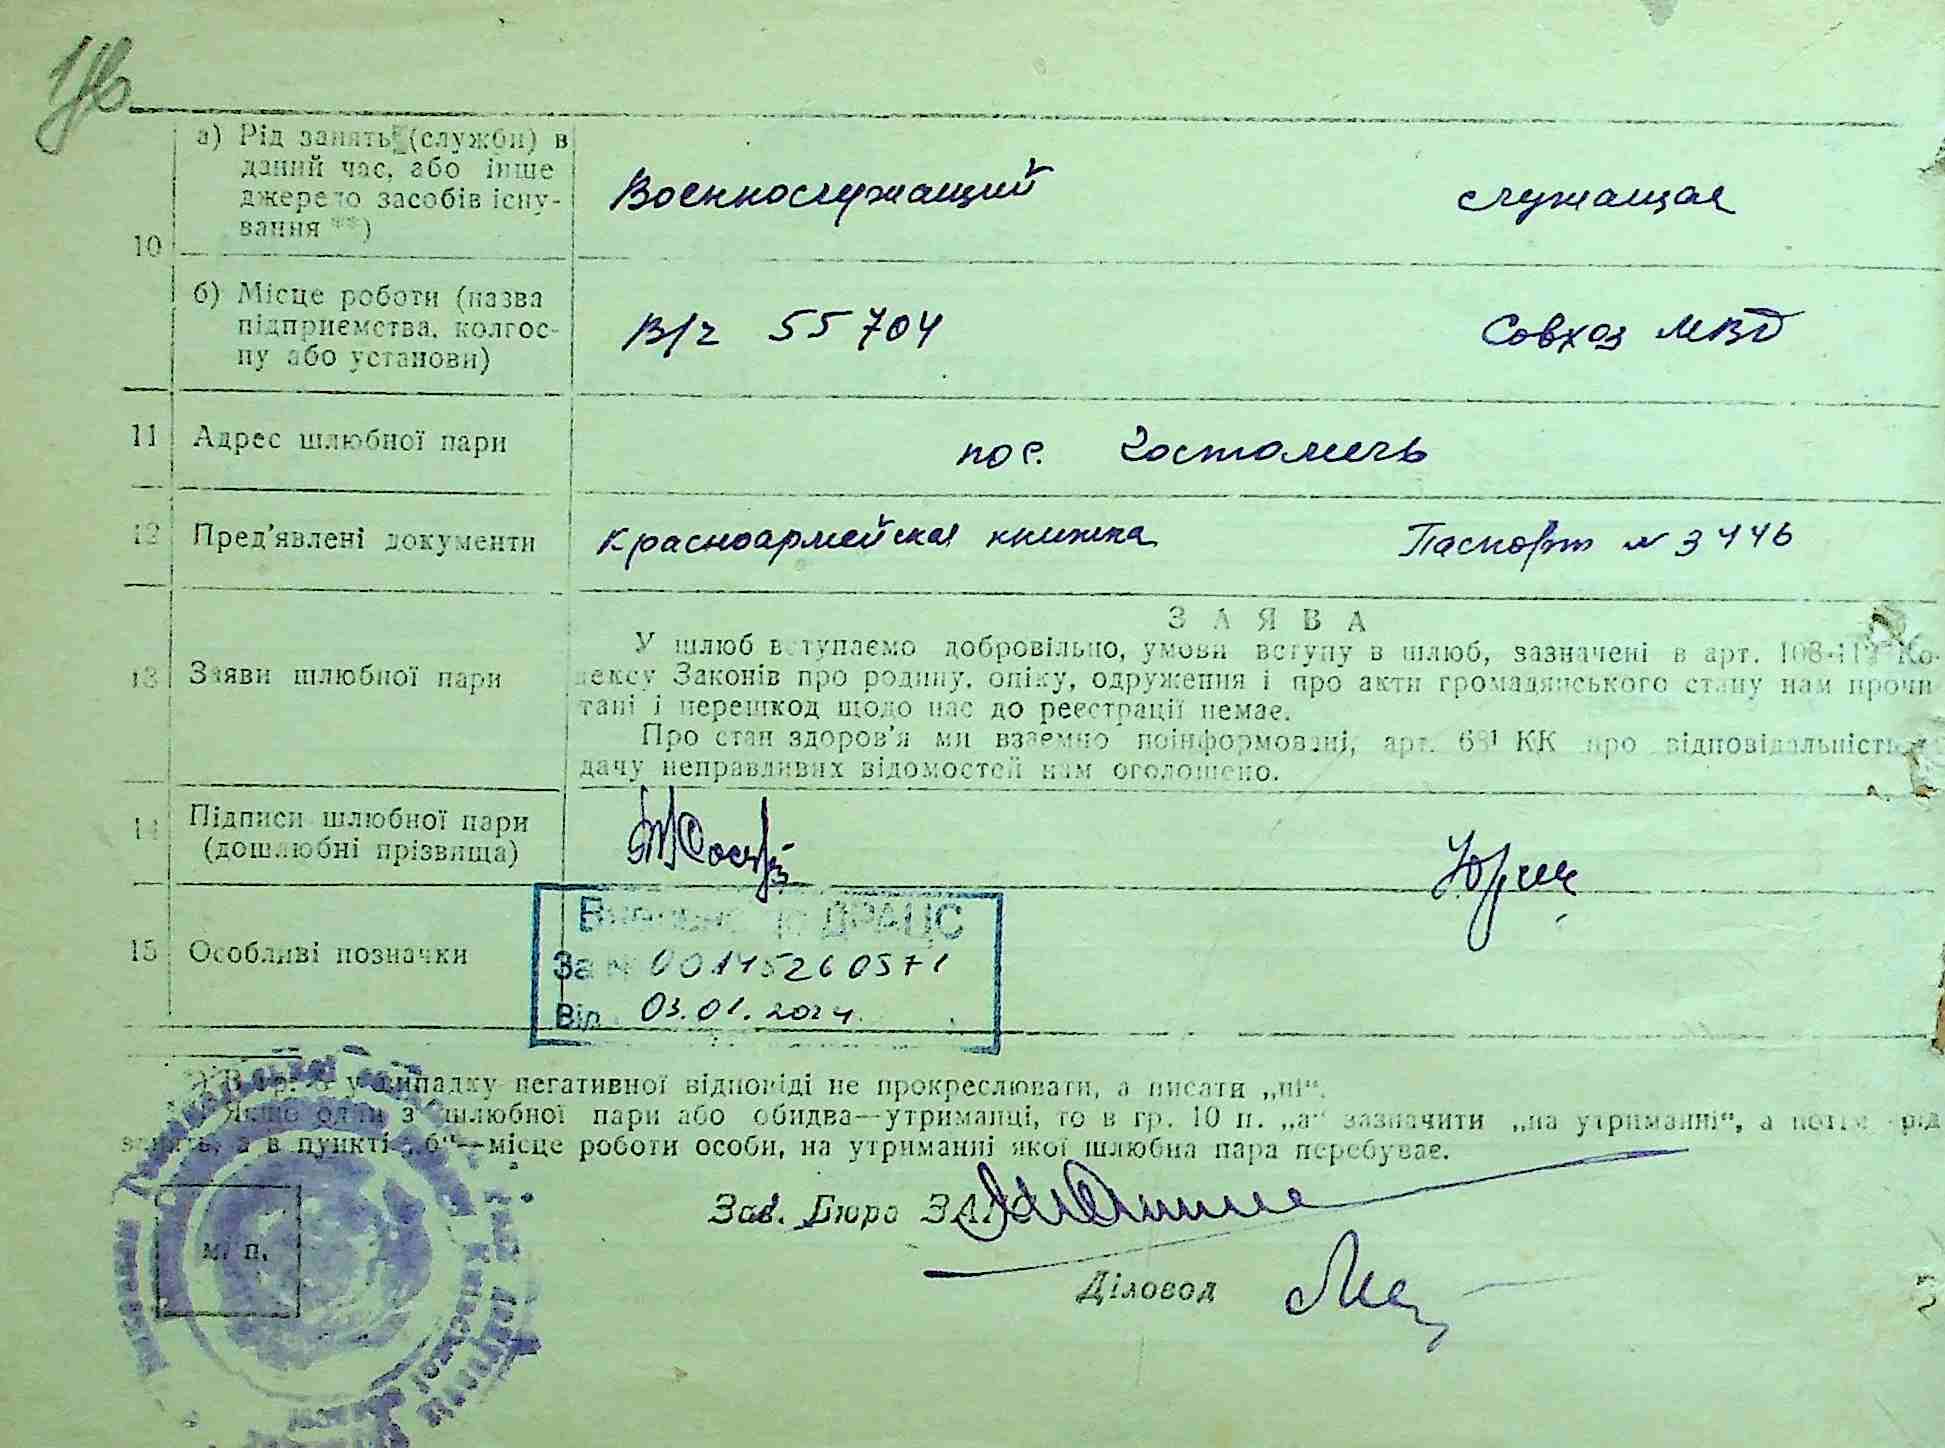 10
а) Рід занять (служби) в
даний час, або інше
джерело засобів існу-
вання **)
Военнослужащий
служащая
б) Місце роботи (назва
підприємства, колгос-
пу або установи)
В/ч 55704
Совхоз МВД
11
Адрес шлюбної пари
пос. Гостомель
12
Пред'явлені документи
Красноармейская книжка
Паспорт № 3446
13
Заяви шлюбної пари
ЗАЯВА
У шлюб вступаємо добровільно, умови вступу в шлюб, зазначені в арт. Ко-
дексу Законів про родину, опіку, одруження і про акти громадянського стану нам прочи-
тані і перешкод щодо нас до реєстрації немає.
Про стан здоров'я ми взаємно поінформовані, арт. КК про відповідальність
дачу неправдивих відомостей нам оголошено.
14
Підписи шлюбної пари
(дошлюбні прізвища)
15
Особливі позначки
ДРАЦС
За № 00145260571
Від 03.01.2024
у випадку негативної відповіді не прокреслювати, а писати „ні“.
Якщо один з шлюбної пари або обидва—утриманці, то в гр. 10 п. „а“ зазначити „на утриманні“, а потім рід
занять, а в пункті „б“—місце роботи особи, на утриманні якої шлюбна пара перебуває.
м. п.
Зав. Бюро ЗАГС
Діловод